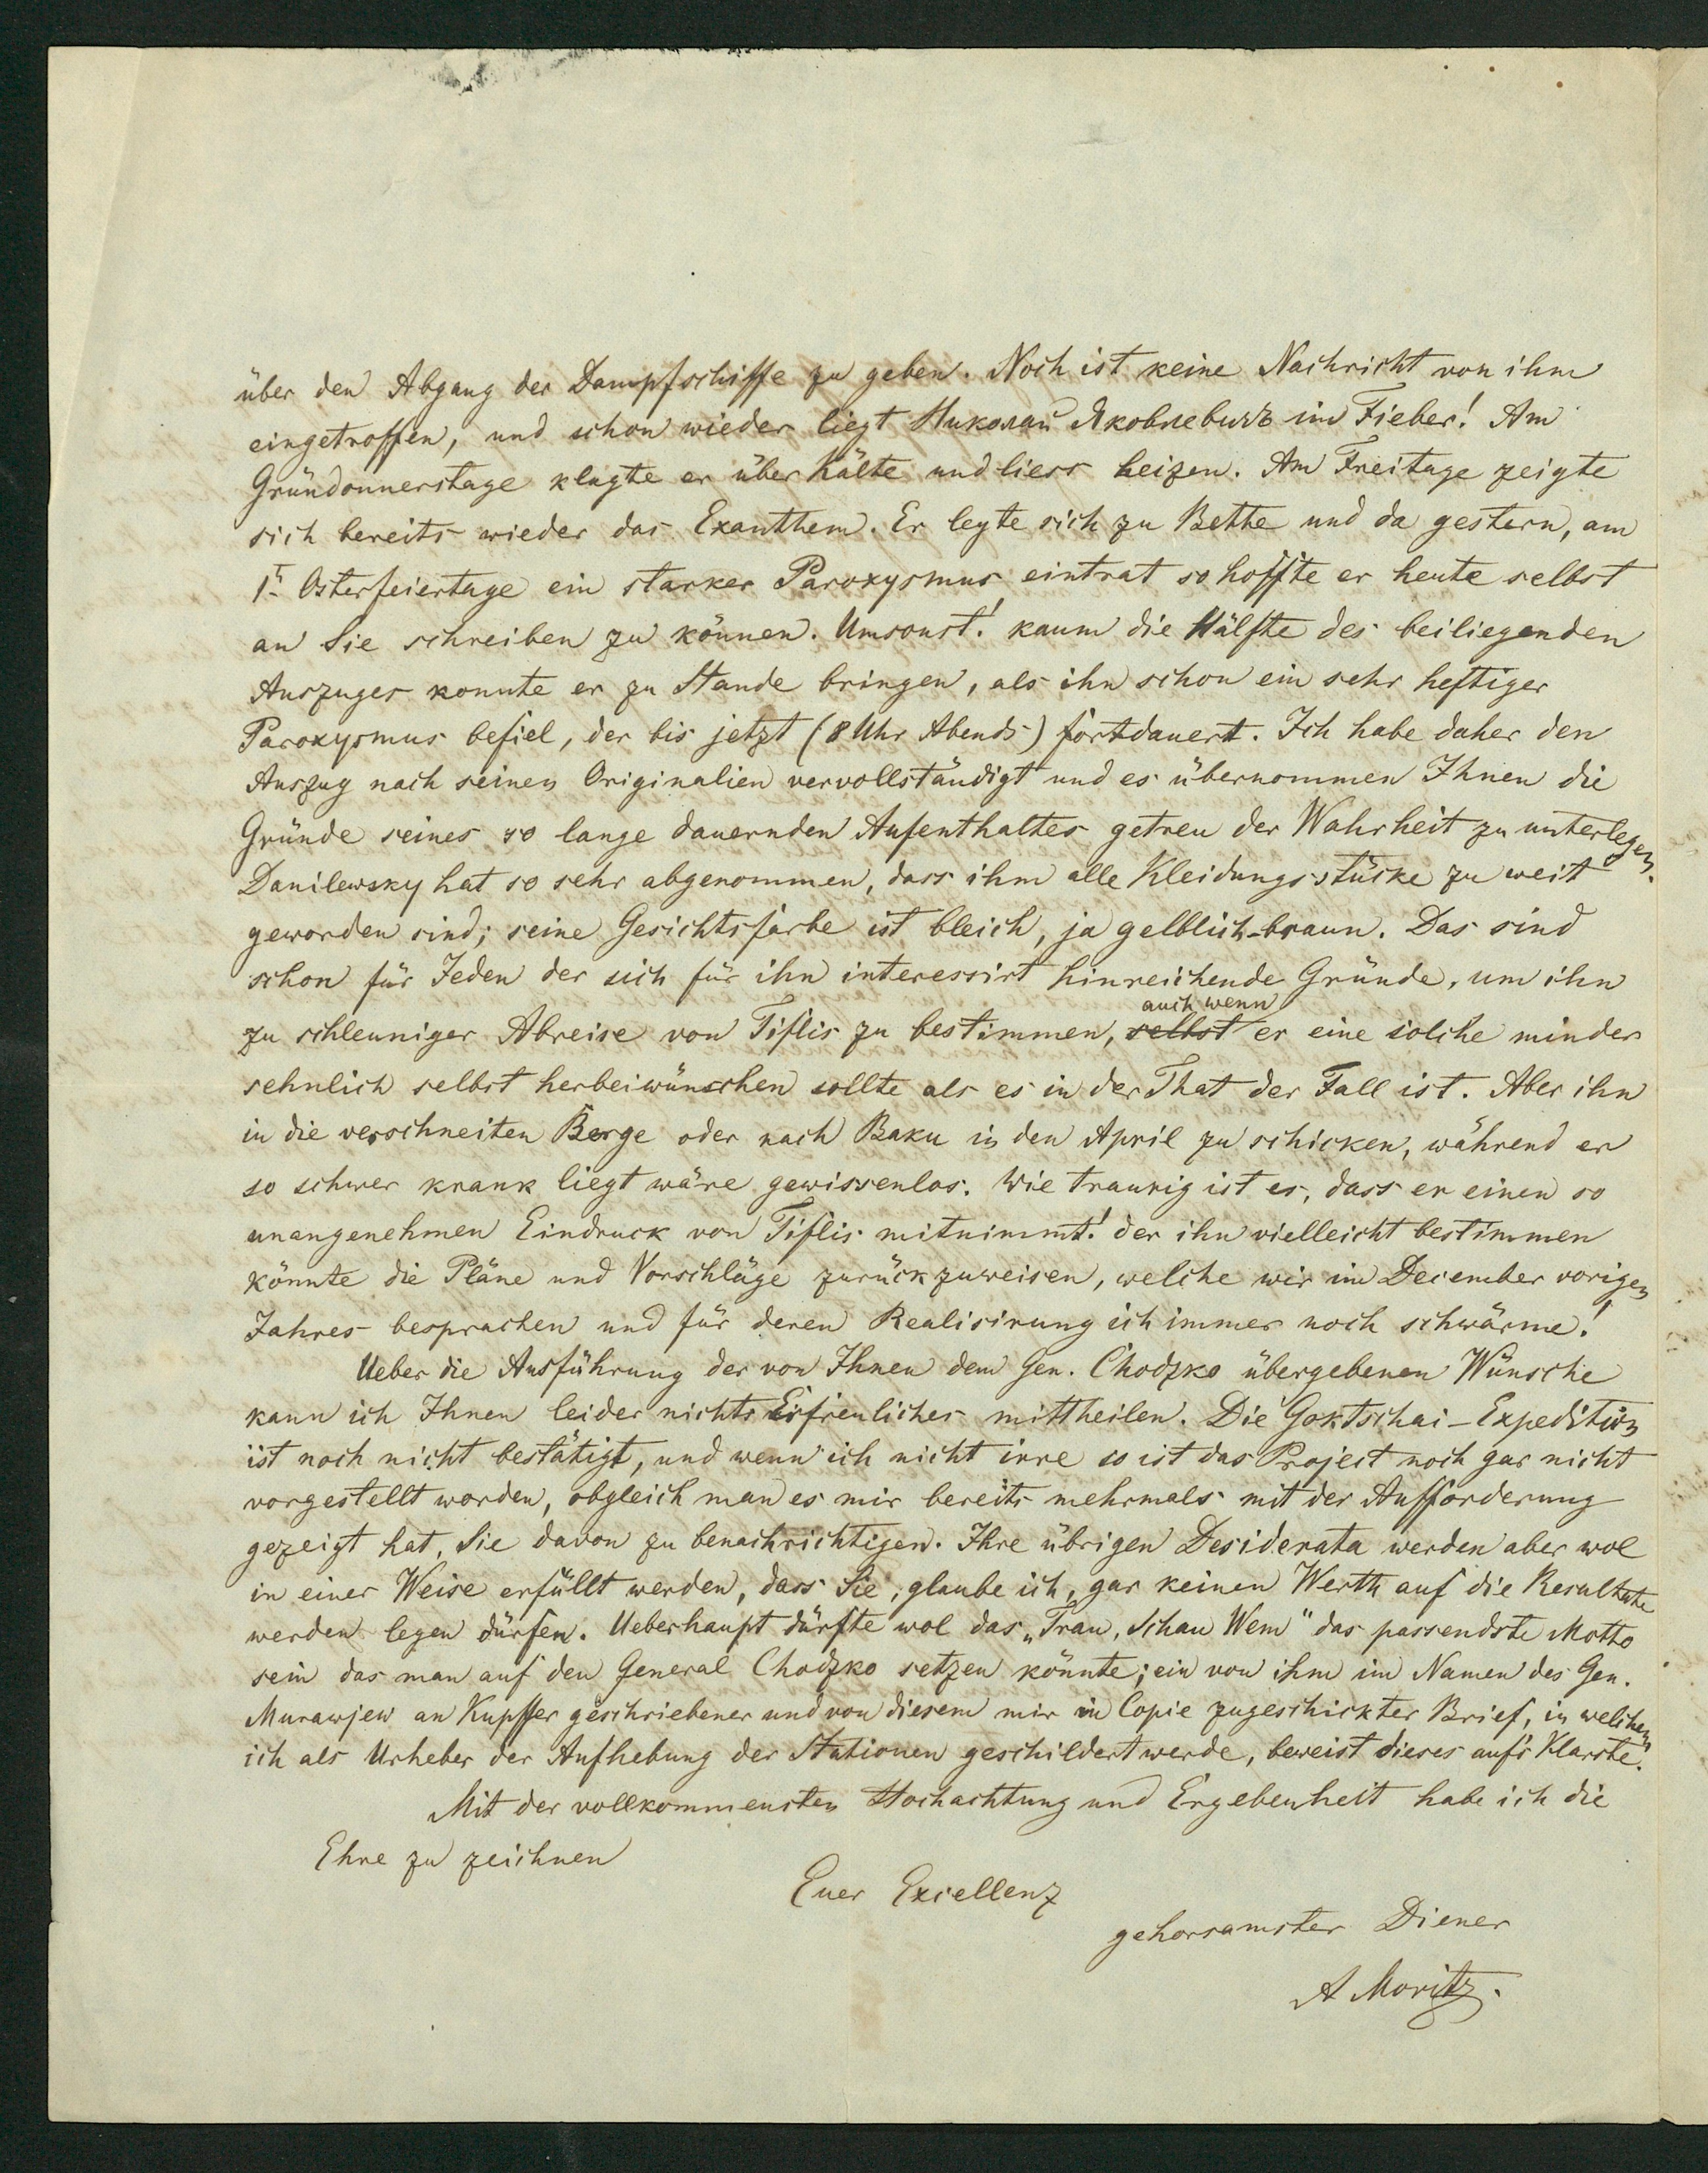 über den Abgang der Dampfschiffe zu geben. Noch ist keine Nachricht von ihm
eingetroffen, und schon wieder liegt Николай Яковлевичъ im Fieber! Am
Gründonnerstage klagte er über Kälte und liess heizen. Am Freitage zeigte
sich bereits wieder das Exanthem. Er legte sich zu Bette und da gestern, am
1t Osterfeiertage ein starker Paroxysmus eintrat so hoffte er heute selbst
an Sie schreiben zu können. Umsonst! kaum die Hälfte des beiliegenden
Auszuges konnte er zu Stande bringen, als ihn schon ein sehr heftiger
Paroxysmus befiel, der bis jetzt (8 Uhr Abends) fortdauert. Ich habe daher den
Auszug nach seinen Originalien vervollständigt und es übernommen Ihnen die
Gründe seines so lange dauernden Aufenthaltes getreu der Wahrheit zu unterlegen.
Danilewsky hat so sehr abgenommen, dass ihm alle Kleidungsstücke zu weit
geworden sind; seine Gesichtsfarbe ist bleich, ja gelblich-braun. Das sind
schon für Jeden der sich für ihn interessirt hinreichende Gründe, um ihn
auch wenn
zu schleuniger Abreise von Tiflis zu bestimmen, selbst er eine solche minder
sehnlich selbst herbeiwünschen sollte als es in der That der Fall ist. Aber ihn
in die verschneiten Berge oder nach Baku in den April zu schicken, während er
so schwer krank liegt wäre gewissenlos. Wie traurig ist es, dass er einen so
unangenehmen Eindruck von Tiflis mitnimmt! der ihn vielleicht bestimmen
könnte die Pläne und Vorschläge zurückzuweisen, welche wir im December vorigen
Jahres besprachen und für deren Realisirung ich immer noch schwärme!
Ueber die Ausführung der von Ihnen dem Gen. Chodzko übergebenen Wünsche
kann ich Ihnen leider nichts Erfreuliches mittheilen. Die Goktschai-Expedition
ist noch nicht bestätigt, und wenn ich nicht irre so ist das Project noch gar nicht
vorgestellt worden, obgleich man es mir bereits mehrmals mit der Aufforderung
gezeigt hat, Sie davon zu benachrichtigen. Ihre übrigen Desiderata werden aber wol
in einer Weise erfüllt werden, dass Sie, glaube ich, gar keinen Werth auf die Resultate
werden legen dürfen. Ueberhaupt dürfte wol das „Trau, Schau Wem" das passendste Motto
sein das man auf den General Chodzko setzen könnte; ein von ihm im Namen des Gen.
Murawjew an Kupffer geschriebener und von diesem mir in Copie zugeschickter Brief, in welchem
ich als Urheber der Aufhebung der Stationen geschildert werde, beweist dieses auf's Klarste.
Mit der vollkommensten Hochachtung und Ergebenheit habe ich die
Ehre zu zeichnen
Euer Excellenz
gehorsamster Diener
A Moritz.